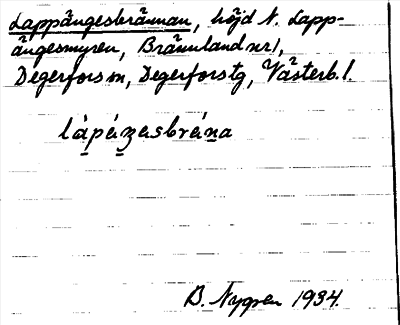 Lappängesbrännan, höjd N. Lapp-
ängesmyren, Brännland nr 1,
Degerfors sn, Degerfors tg, Västerb. l.
lapäzesbräna
B. Nygren 1934.